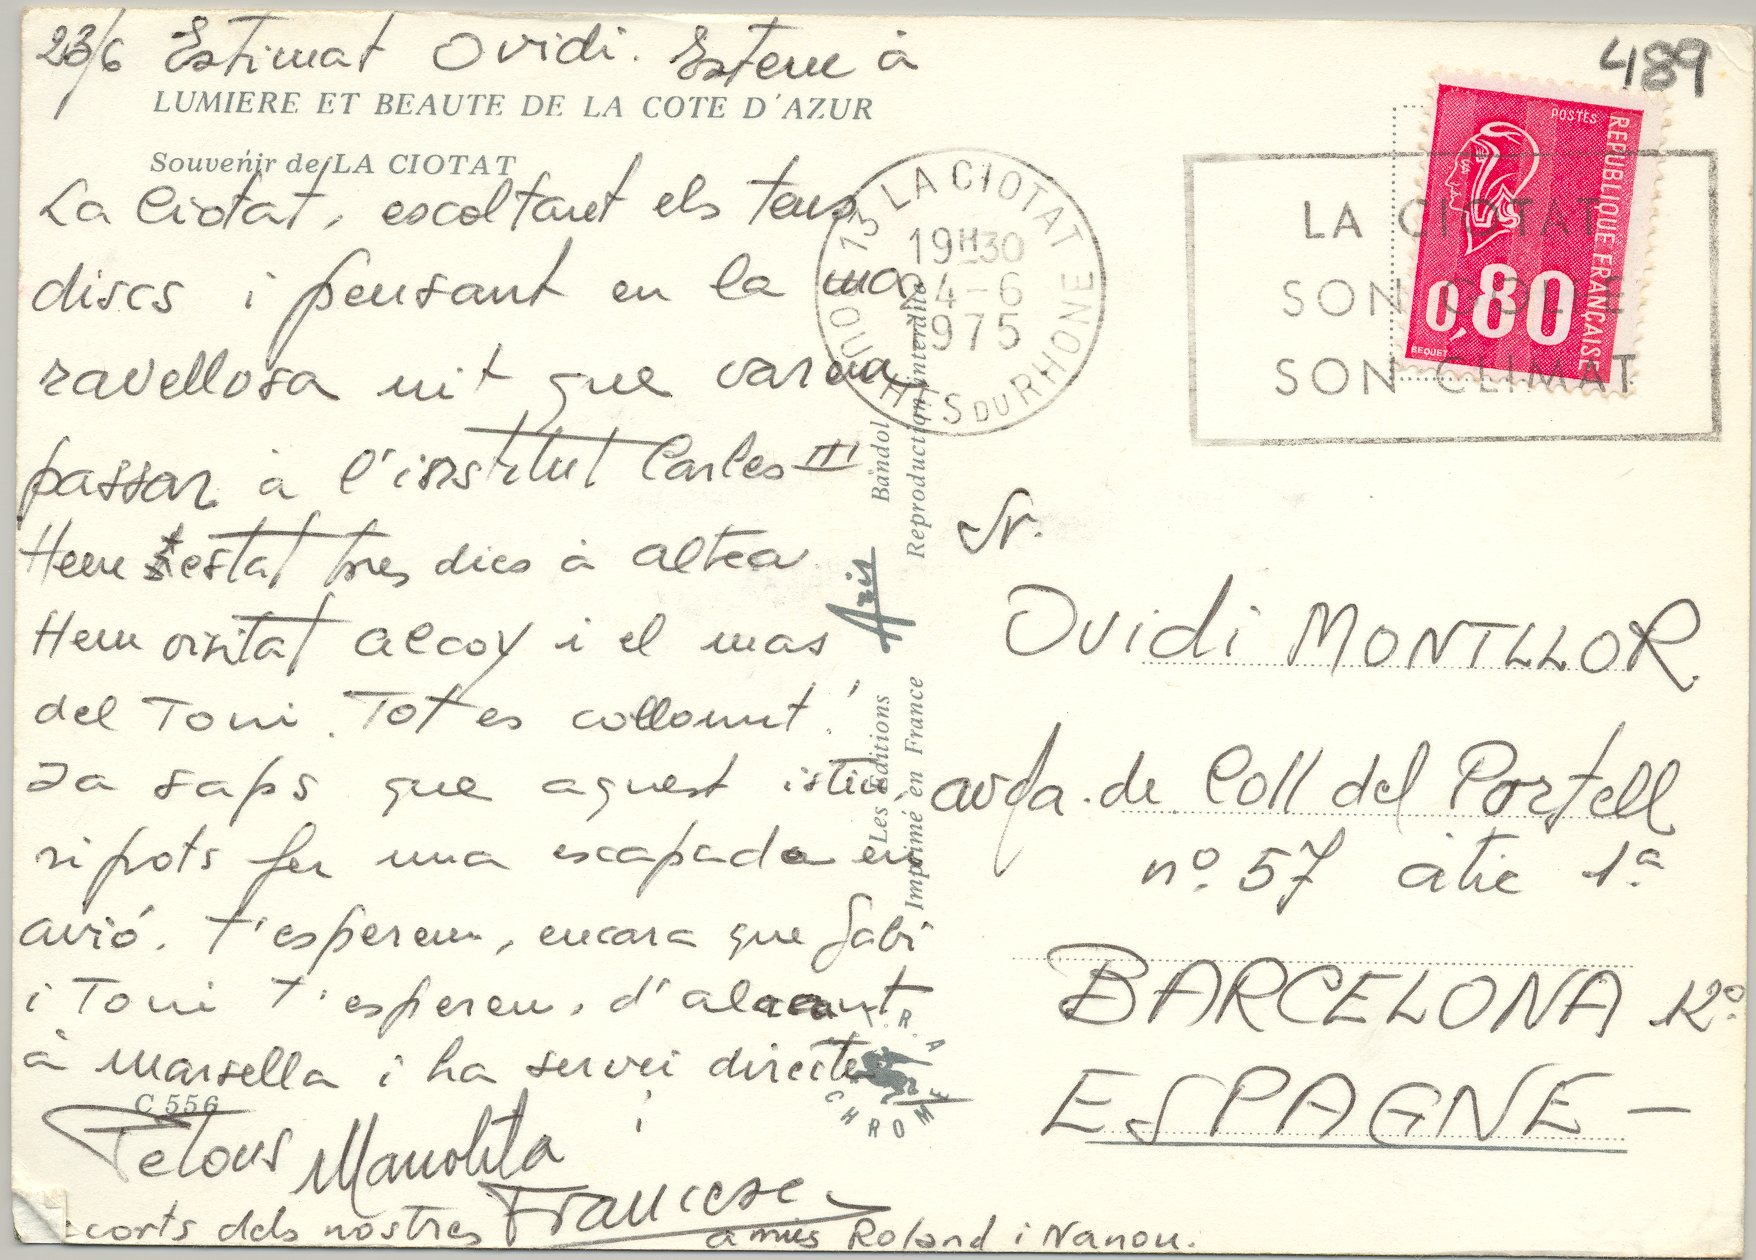 23/6 Estimat Ovidi. Estem à
LUMIERE ET BEAUTE DE LA COTE D'AZUR
Souvenir de LA CIOTAT
La Ciotat, escoltant els teus
discs i pensant en la ma
ravellosa nit que varem
passar à l'institut Carles III
Hem estat tres dies à altea
Hem visitat alcoy i el mas
del Toni. Tot es collonut!
Ja saps que aquest istiu,
si pots fer una escapada en
avió. t'esperem, encara que Gabi
i Toni t'esperen. d'alacant
à marsella i ha servei directe
C 556
Petons Manolita i
Francesc
ecorts dels nostres amics Roland i Nanou.
Les Editions Aris Bandol
Imprimé en France Reproduction interdite
I.R.A.
CHROME
489
POSTES
REPUBLIQUE FRANÇAISE
0,80
BEQUET
13 LA CIOTAT
19H30
24-6
1975
BOUCHES DU RHONE
LA CIOTAT
SON GOLFE
SON CLIMAT
Sr.
Ovidi MONTLLOR
avda. de Coll del Portell
nº. 57 àtic 1ª
BARCELONA 12º
ESPAGNE -